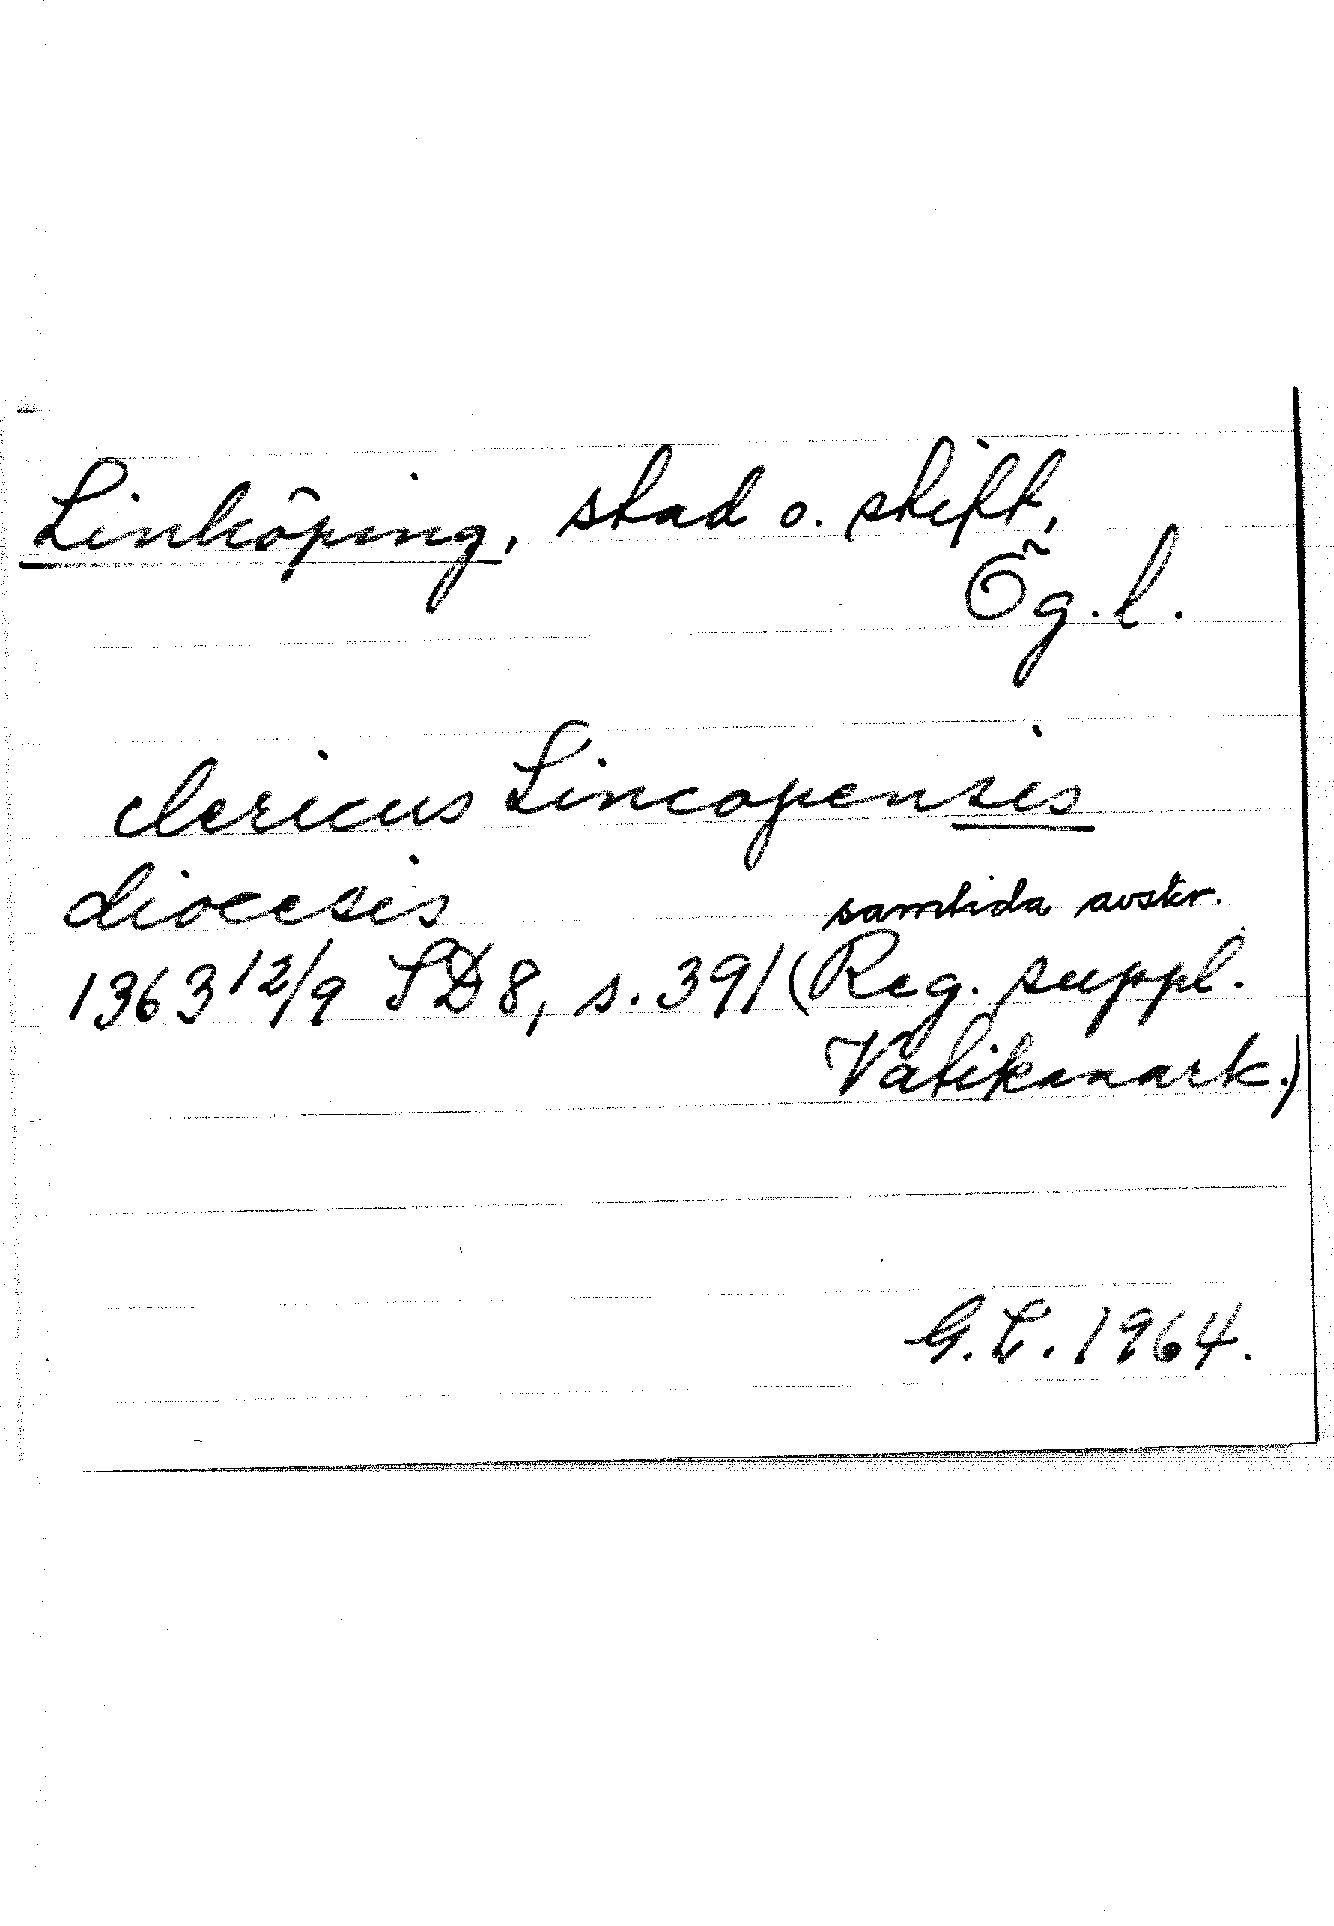 Linköping, stad o. stift,
Ög.l.
clericus Lincopensis
diocesis
samtida avskr.
1363 12/9 SD 8, s. 391 (Reg. suppl.
Vatikanark.)
G.L. 1964.